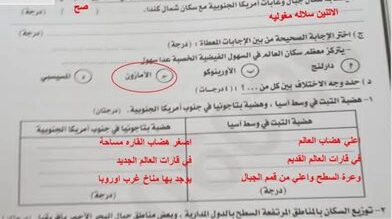 سكان جبال وغابات أمريكا الجنوبية مع سكان شمال كندا. صح
الاثنين سلاله مغوليه (درجة)
ج) اختر الإجابة الصحيحة من بين الإجابات المعطاة : (درجة)
يتركز معظم سكان العالم في السهول الفيضية الخصبة عدا سهول
دارلنج ب الأورينوكو ج الأمازون د المسيسبي
د) حدد وجه الاختلاف بين كل من ...؟ (٤ درجات)
١- هضبة التبت في وسط آسيا ، وهضبة بتاجونيا في جنوب أمريكا الجنوبية. (درجتان)
هضبة التبت في وسط آسيا هضبة بتاجونيا في جنوب أمريكا الجنوبية
اعلي هضاب العالم اصغر هضاب القاره مساحة
في قارات العالم القديم في قارات العالم الجديد
وعرة السطح واعلي من قمم الجبال يوجد بها مناخ غرب اوروبا
(درجة) (درجة)
٢- توزيع السكان بالمناطق المرتفعة السطح بالدول المدارية ، وبعض مناطق جبال البحر الأحمر